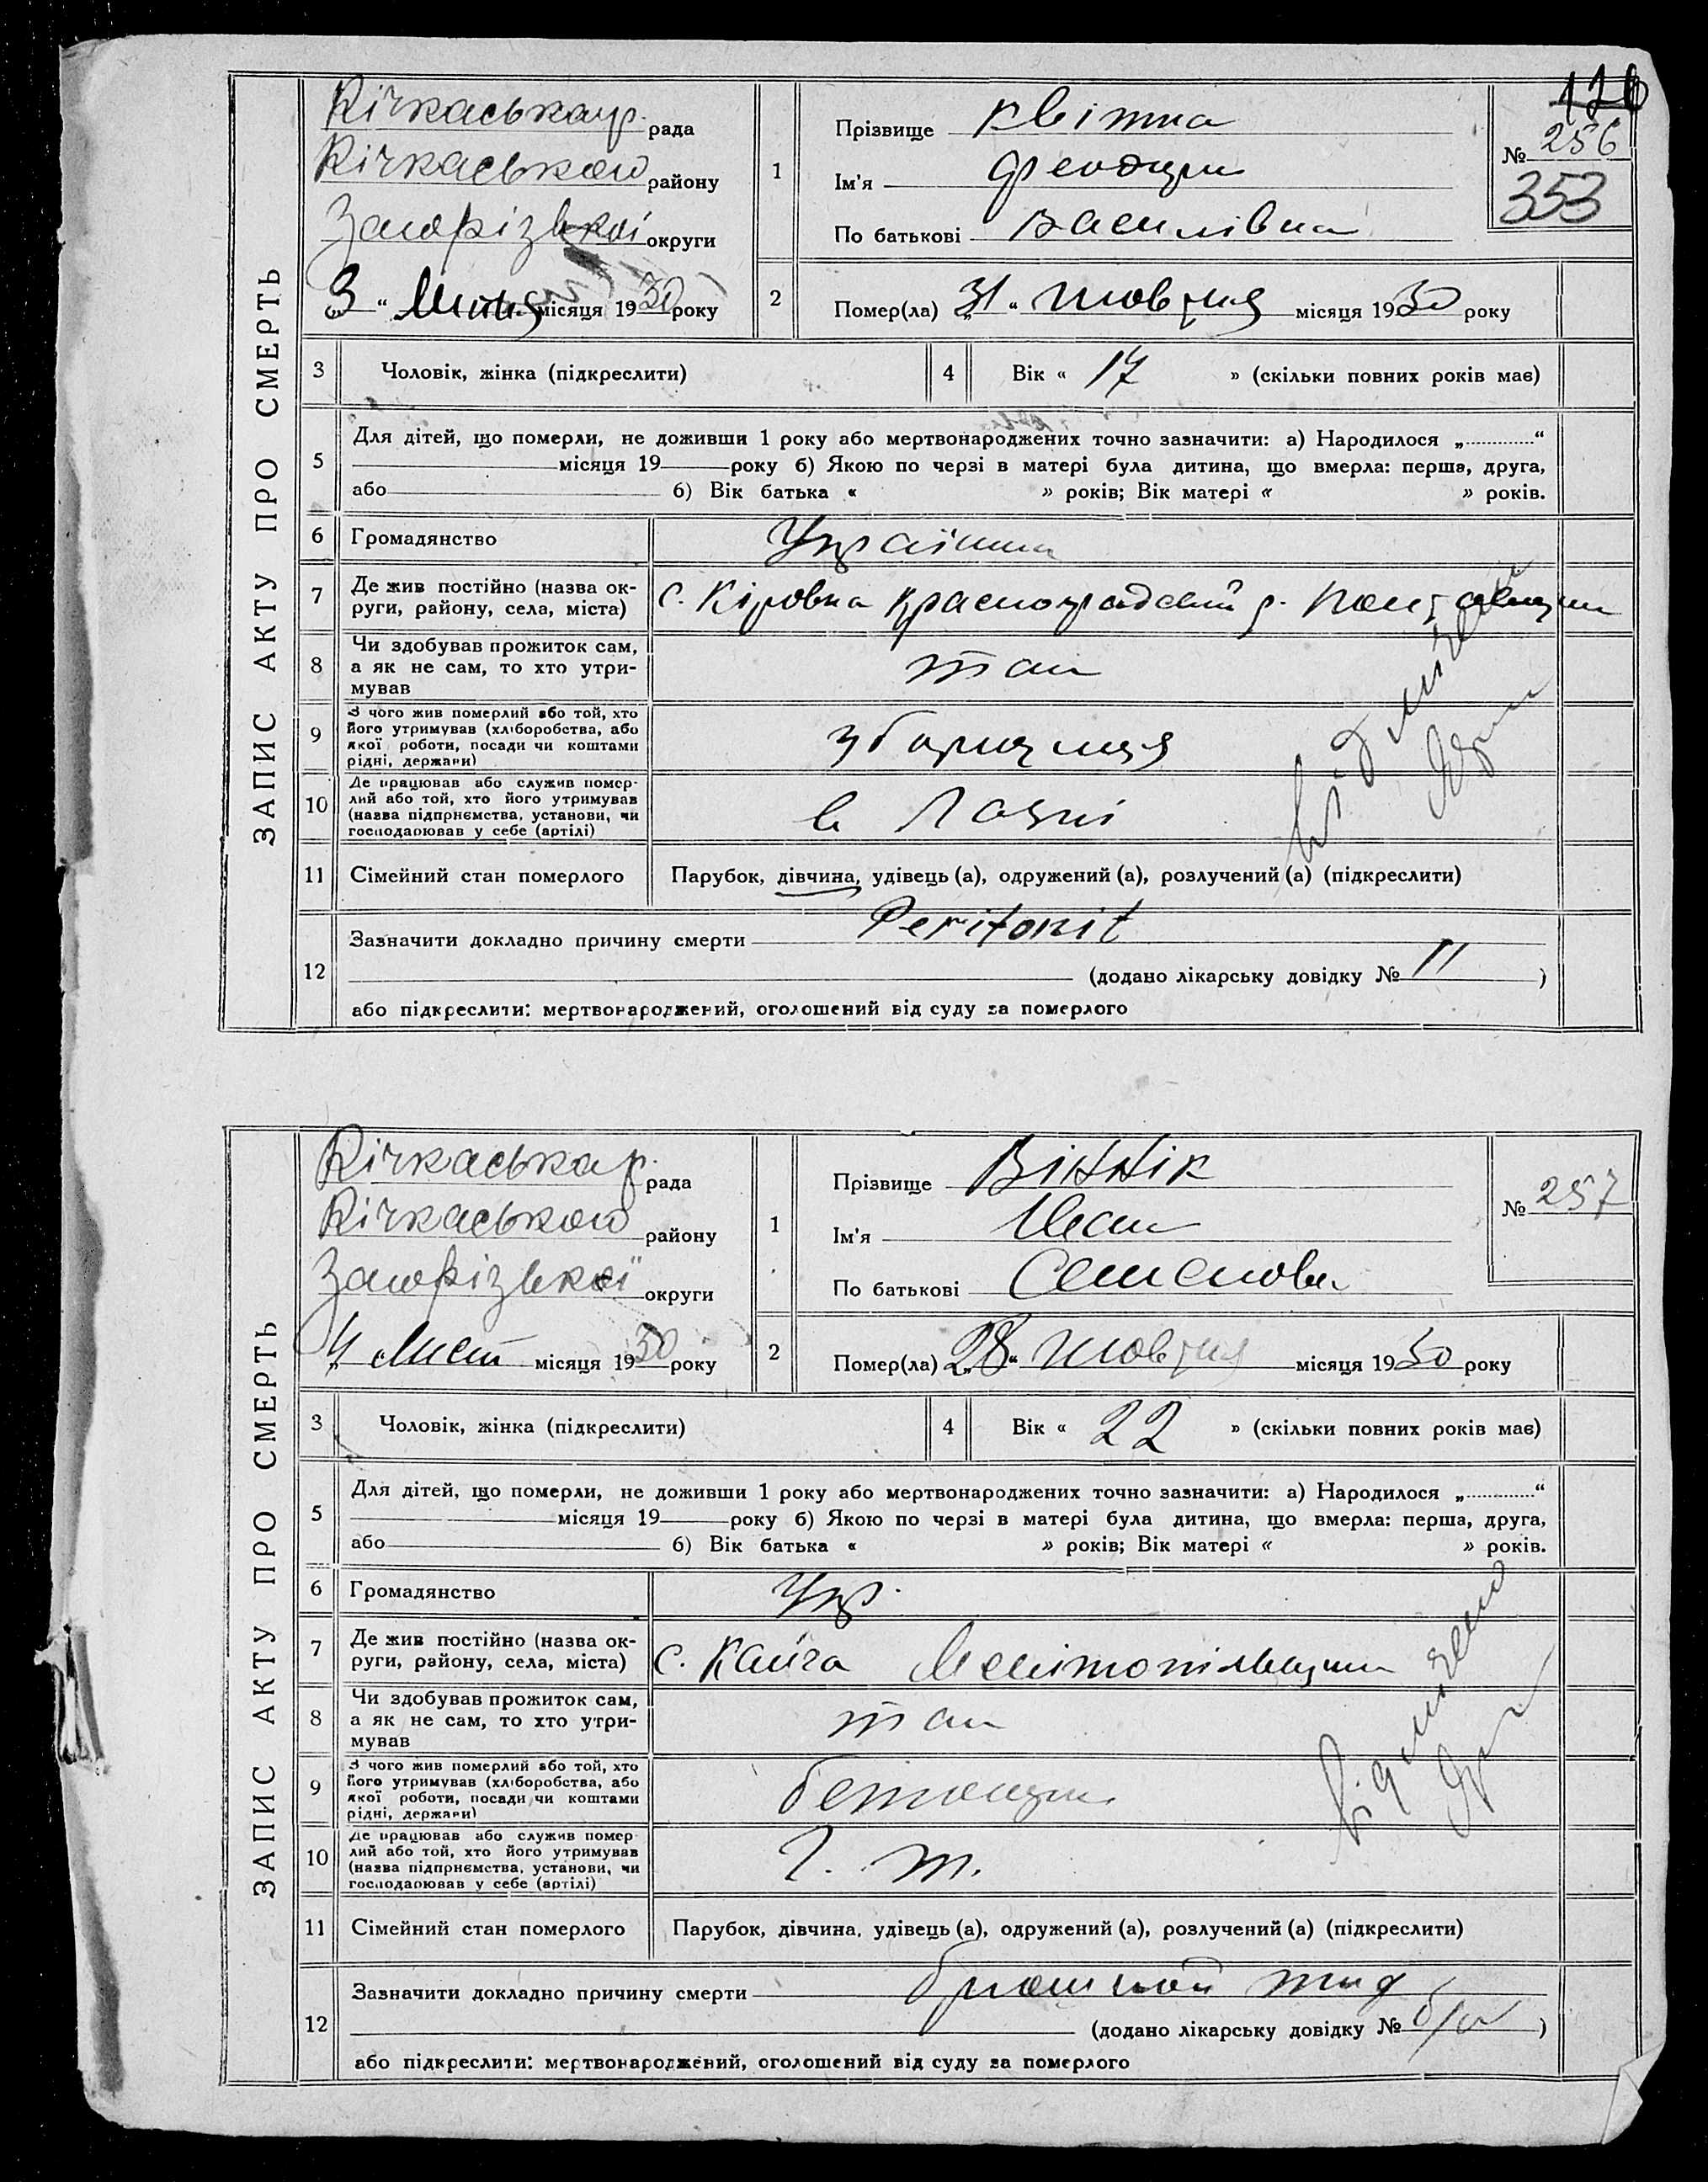 126
ЗАПИС АКТУ ПРО СМЕРТЬ
Кічкаська р. рада
Кічкаського району
Запорізької округи
„3“ місяця 1930 року
1
Прізвище Квітка
Ім'я
По батькові Василівна
№ 256
353
2
Помер(ла) „31“ жовтня місяця 1930 року
3 Чоловік, жінка (підкреслити)
4 Вік « 17 » (скільки повних років має)
5 Для дітей, що померли, не доживши 1 року або мертвонароджених точно зазначити: а) Народилося „............“
місяця 19 року б) Якою по черзі в матері була дитина, що вмерла: перша, друга,
або б) Вік батька « » років; Вік матері « » років.
6 Громадянство Українка
7 Де жив постійно (назва ок-
руги, району, села, міста) с. Кіровка Красноградський р.
8 Чи здобував прожиток сам,
а як не сам, то хто утри-
мував так
9 З чого жив померлий або той, хто
його утримував (хліборобства, або
якої роботи, посади чи коштами
рідні, держави)
10 Де працював або служив помер-
лий або той, хто його утримував
(назва підприємства, установи, чи
господарював у себе (артілі) в Лазні
11 Сімейний стан померлого Парубок, дівчина, удівець (а), одружений (а), розлучений (а) (підкреслити)
12 Зазначити докладно причину смерти Peritonit
(додано лікарську довідку № 11 )
або підкреслити: мертвонароджений, оголошений від суду за померлого
ЗАПИС АКТУ ПРО СМЕРТЬ
Кічкаська р. рада
Кічкаського району
Запорізької округи
„4“ Лист місяця 1930 року
1
Прізвище Віннік
Ім'я
По батькові Семенович
№ 257
2
Помер(ла) „28“ жовтня місяця 1930 року
3 Чоловік, жінка (підкреслити)
4 Вік « 22 » (скільки повних років має)
5 Для дітей, що померли, не доживши 1 року або мертвонароджених точно зазначити: а) Народилося „............“
місяця 19 року б) Якою по черзі в матері була дитина, що вмерла: перша, друга,
або б) Вік батька « » років; Вік матері « » років.
6 Громадянство Укр.
7 Де жив постійно (назва ок-
руги, району, села, міста) с. Мелітопільщини
8 Чи здобував прожиток сам,
а як не сам, то хто утри-
мував так
9 З чого жив померлий або той, хто
його утримував (хліборобства, або
якої роботи, посади чи коштами
рідні, держави) бетонщик
10 Де працював або служив помер-
лий або той, хто його утримував
(назва підприємства, установи, чи
господарював у себе (артілі)
11 Сімейний стан померлого Парубок, дівчина, удівець (а), одружений (а), розлучений (а) (підкреслити)
12 Зазначити докладно причину смерти брюшной тиф
(додано лікарську довідку № б/н )
або підкреслити: мертвонароджений, оголошений від суду за померлого